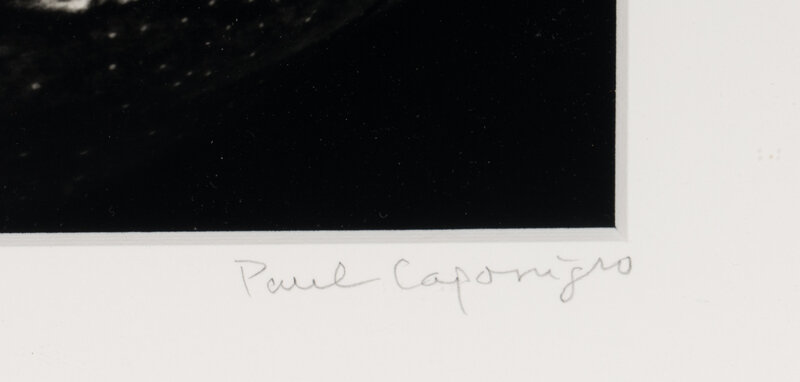 Paul Caponigro